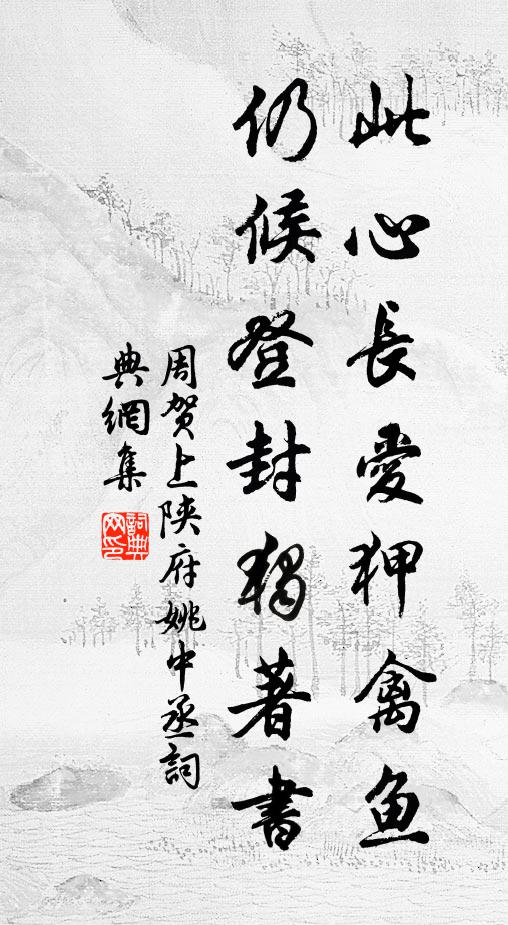 此心長愛狎禽鱼
仍候登封獨著書
周贺上陝府姚中丞詞
典網集
詞典网印